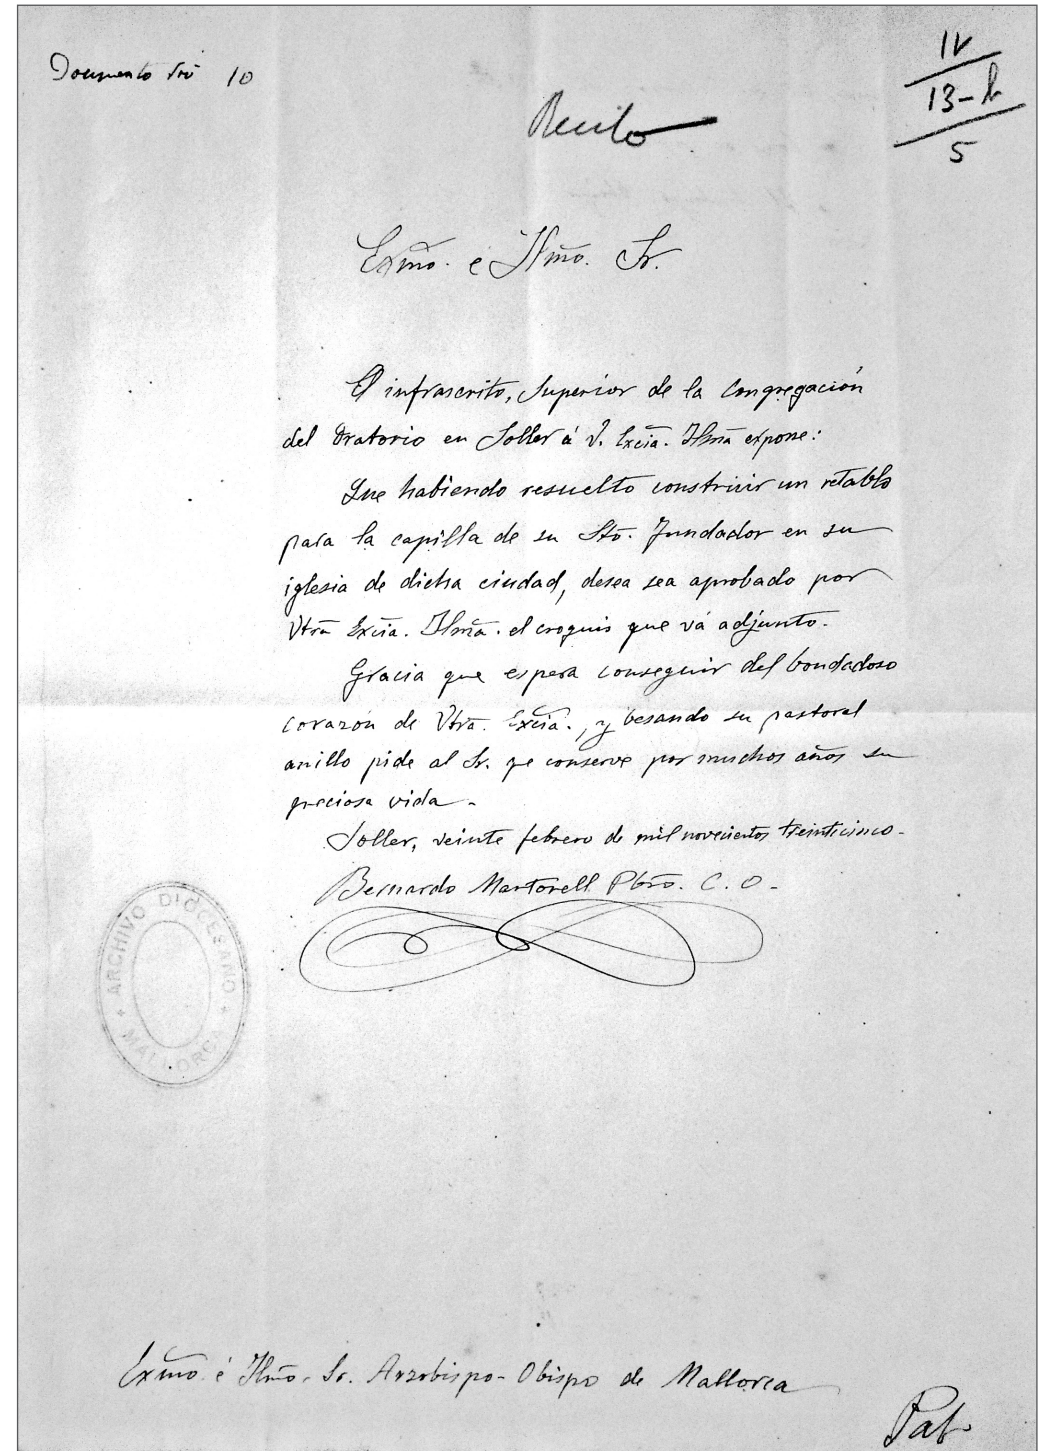 Documento 10
IV
13-b
5
Exmo. é Ilmo. Sr.
El infrascrito, Superior de la Congregación
del Oratorio en Soller á V. Excia. Ilma expone:
Que habiendo resuelto construir un retablo
para la capilla de su Sto. Fundador en su
iglesia de dicha ciudad, desea sea aprobado por
Vtra Excia. Ilma. el croquis que vá adjunto.
Gracia que espera conseguir del bondadoso
corazón de Vtra. Excia., y besando su pastoral
anillo pide al Sr. qe conserve por muchos años su
preciosa vida.
Soller, veinte febrero de mil novecientos treinticinco.
Bernardo Martorell Pbro. C. O.
ARCHIVO DIOCESANO
MALLORCA
Exmo. é Ilmo. Sr. Arzobispo-Obispo de Mallorca